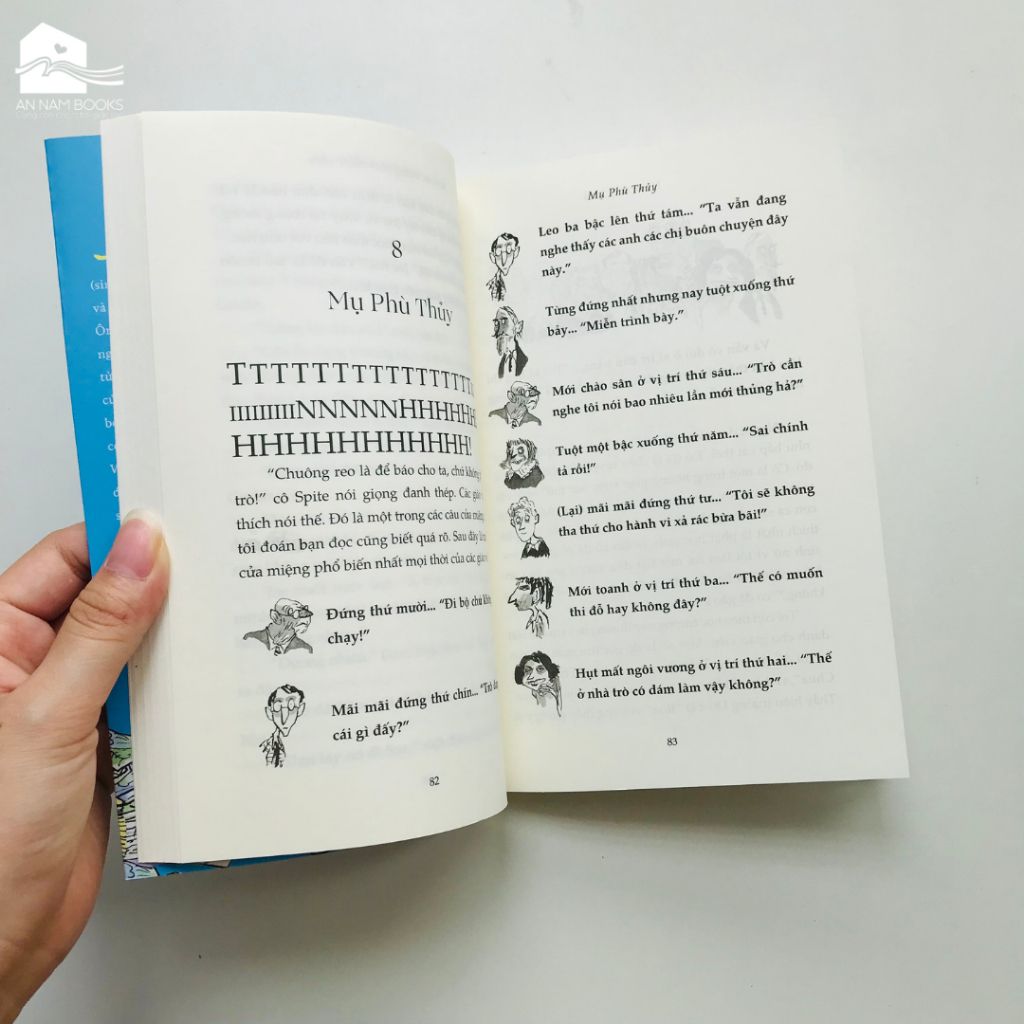 AN NAM BOOKS
8
Mụ Phù Thủy
TTTTTTTTTTTTTTTT
IIIIIIIIIINNNNNHHHHHH
HHHHHHHHHHHH!
“Chuông reo là để báo cho ta, chứ không
trò!” cô Spite nói giọng đanh thép. Các
thích nói thế. Đó là một trong các câu cửa
tôi đoán bạn đọc cũng biết quá rõ. Sau đây
cửa miệng phổ biến nhất mọi thời của các
Đứng thứ mười... “Đi bộ chứ
chạy!”
Mãi mãi đứng thứ chín...
cái gì đấy?”
82
Mụ Phù Thủy
Leo ba bậc lên thứ tám... “Ta vẫn đang
nghe thấy các anh các chị buôn chuyện đây
này.”
Từng đứng nhất nhưng nay tuột xuống thứ
bảy... “Miễn trình bày.”
Mới chào sân ở vị trí thứ sáu... “Trò cần
nghe tôi nói bao nhiêu lần mới thủng hả?”
Tuột một bậc xuống thứ năm... “Sai chính
tả rồi!”
(Lại) mãi mãi đứng thứ tư... “Tôi sẽ không
tha thứ cho hành vi xả rác bừa bãi!”
Mới toanh ở vị trí thứ ba... “Thế có muốn
thi đỗ hay không đây?”
Hụt mất ngôi vương ở vị trí thứ hai... “Thế
ở nhà trò có dám làm vậy không?”
83